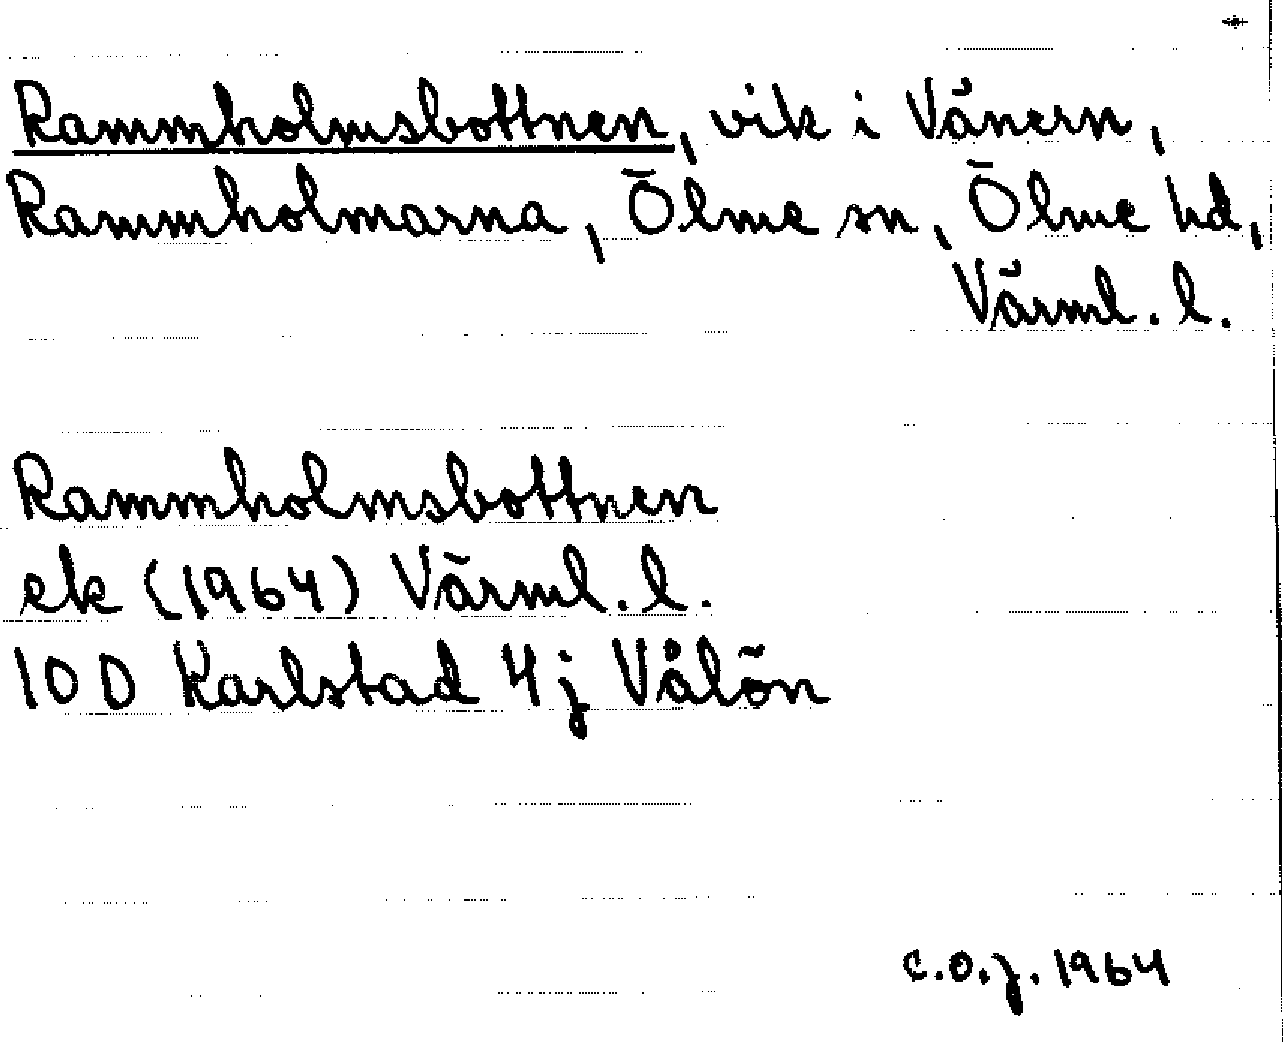 Rammholmsbottnen, vik i Vänern,
Rammholmarna, Ölme sn, Ölme hd,
Värml. l.
Rammholmsbottnen
ek (1964) Värml. l.
10D Karlstad 4j Vålön
C.O.J. 1964